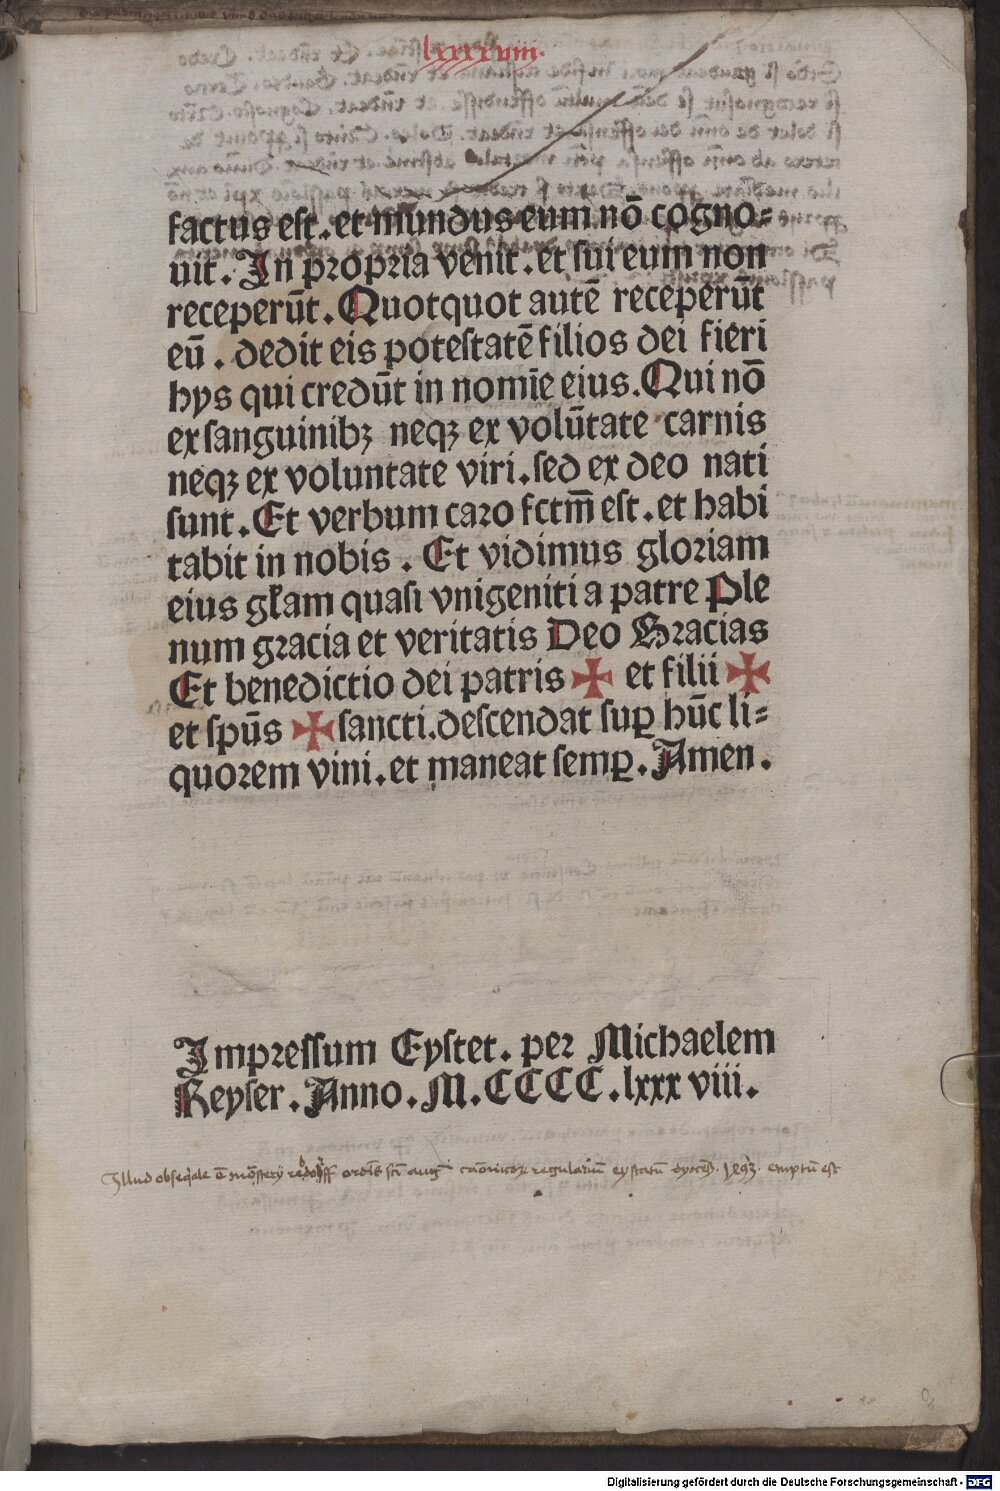 lxxxxviii.
factus est. et mundus eum nō cogno⸗
uit. In propria venit. et sui eum non
receperūt. Quotquot autē receperūt
eū. dedit eis potestatē filios dei fieri
hys qui credūt in nomīe eius. Qui nō
ex sanguinibꝫ neqꝫ ex volūtate carnis
neqꝫ ex voluntate viri. sed ex deo nati
sunt. Et verbum caro fctm̄ est. et habi
tabit in nobis. Et vidimus gloriam
eius głam quasi vnigeniti a patre Ple
num gracia et veritatis Deo Gracias
Et benedictio dei patris ✠ et filii ✠
et spūs ✠ sancti. descendat suꝑ hūc li⸗
quorem vini. et maneat semꝑ. Amen.
Impressum Eystet. per Michaelem
Reyser. Anno. M.CCCC.lxxx viii.
Illud obseq̄ale ē mōstery redorff ordīs sti aug canonicoꝝ regulariū eystetn̄ dyoc 1493. emptū est
Digitalisierung gefördert durch die Deutsche Forschungsgemeinschaft - DFG